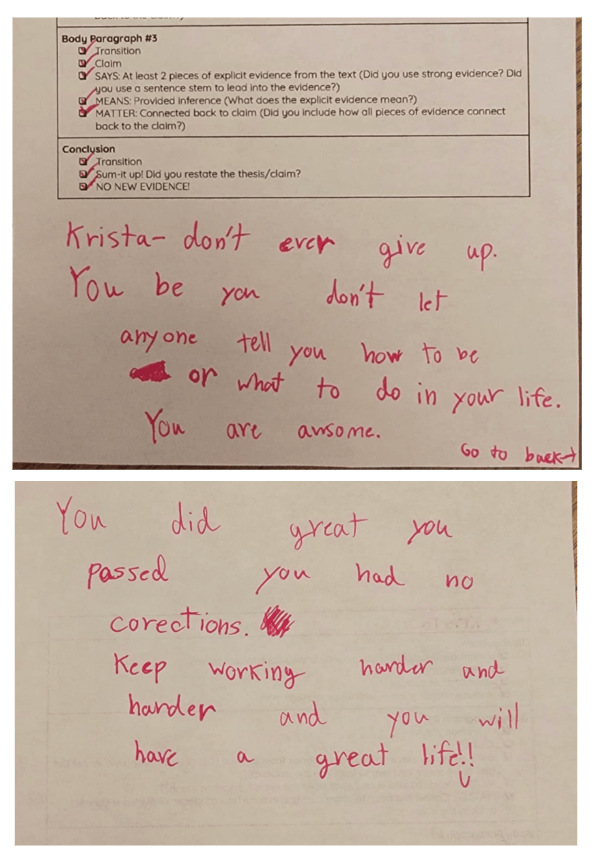 Body Paragraph #3
Transition
Claim
SAYS: At least 2 pieces of explicit evidence from the text (Did you use strong evidence? Did
you use a sentence stem to lead into the evidence?)
MEANS: Provided inference (What does the explicit evidence mean?)
MATTER: Connected back to claim (Did you include how all pieces of evidence connect
back to the claim?)
Conclusion
Transition
Sum-it up! Did you restate the thesis/claim?
NO NEW EVIDENCE!
Krista- don't ever give up.
You be you don't let
anyone tell you how to be
or what to do in your life.
You are awsome.
Go to back→
You did great you
passed you had no
corections.
Keep working harder and
harder and you will
have a great life!!